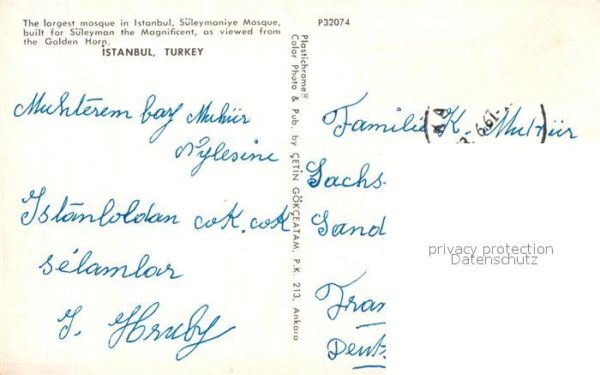 The largest mosque in Istanbul, Süleymaniye Mosque,
built for Süleyman the Magnificent, as viewed from
the Golden Horn.
İSTANBUL, TURKEY
P32074
Plastichrome®
Color Photo & Pub. by ÇETİN GÖKÇEATAM, P.K. 213, Ankara
Muhterem bay Muhür
Aylesine
İstanboldan cok. cok
sélamlar
J. Hruby
Familie K. Muhür
Sachs
Sand
Fran
Deut
privacy protection
Datenschutz